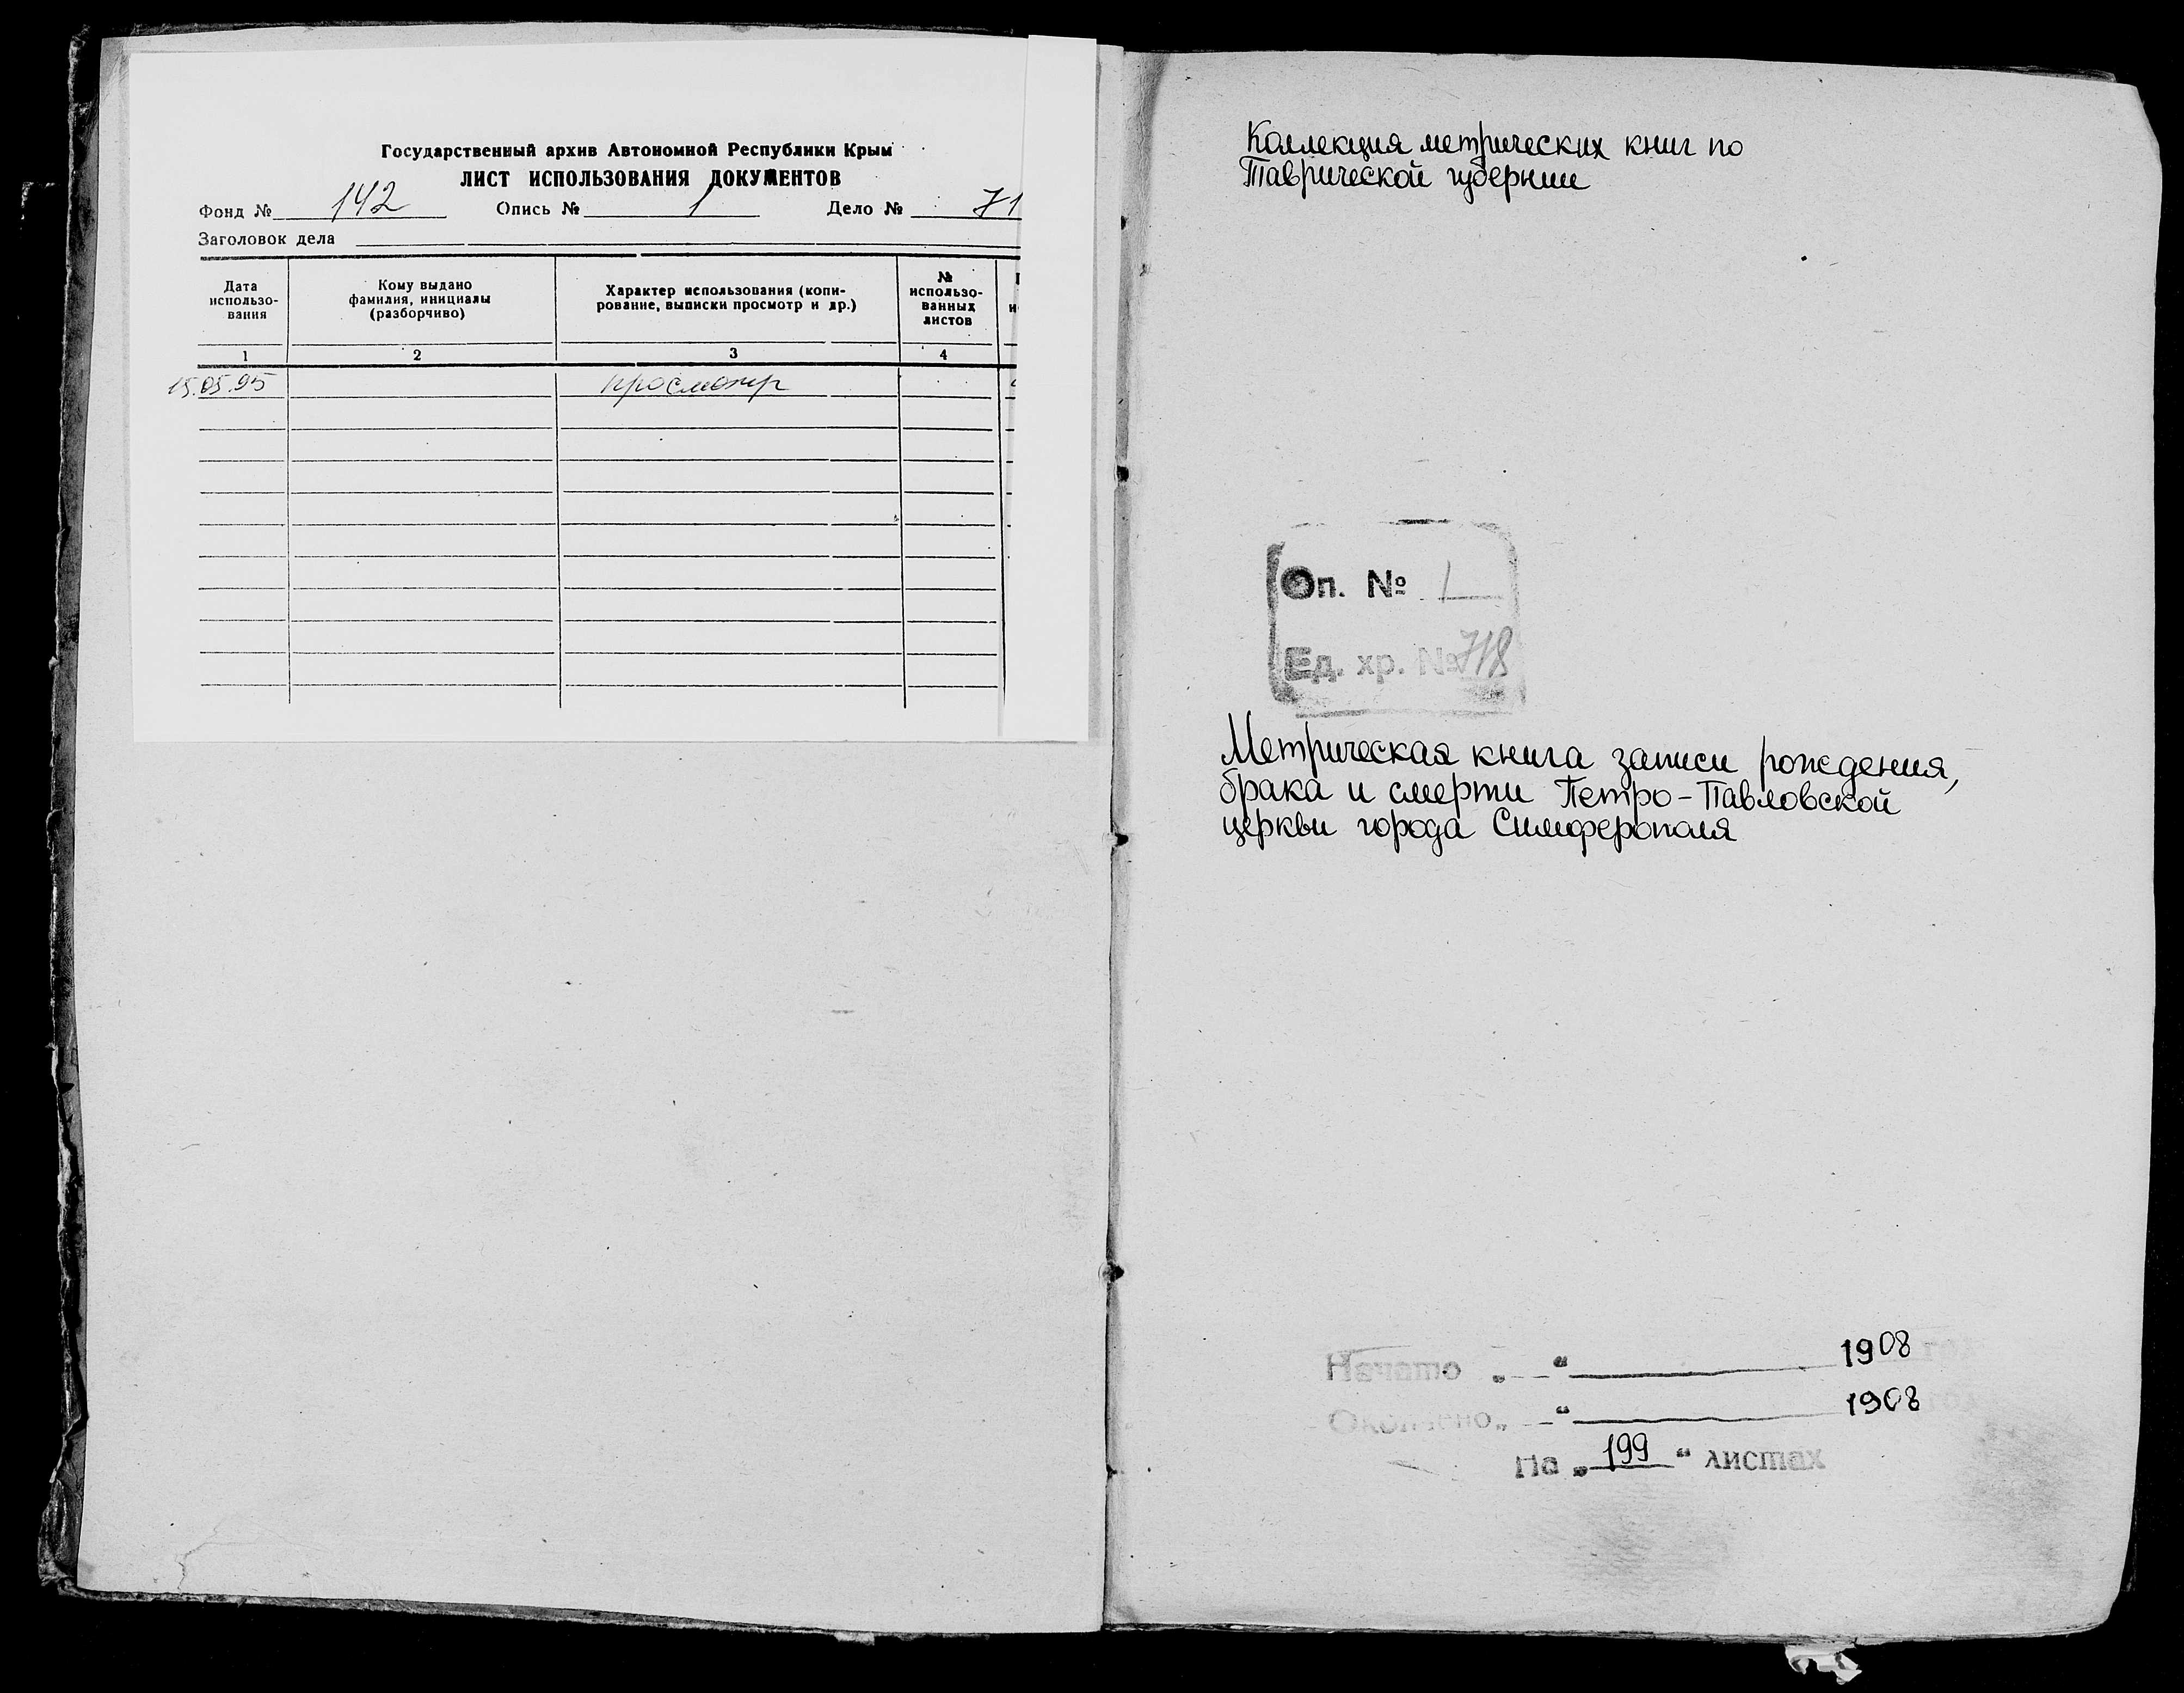 Государственный архив Автономной Республики Крым
ЛИСТ ИСПОЛЬЗОВАНИЯ ДОКУМЕНТОВ
Фонд № 142 Опись № 1 Дело № 71
Заголовок дела
Дата
использо-
вания
Кому выдано
фамилия, инициалы
(разборчиво)
Характер использования (копи-
рование, выписки просмотр и др.)
№
использо-
ванных
листов
1 2 3 4
15.05.95 просмотр
Коллекция метрических книг по
Таврической губернии
Оп. № 1
Ед. хр. № 718
Метрическая книга записи рождения,
брака и смерти Петро-Павловской
церкви города Симферополя
Начато „ “ 1908
Окончено „ “ 1908
На „ 199 “ листах